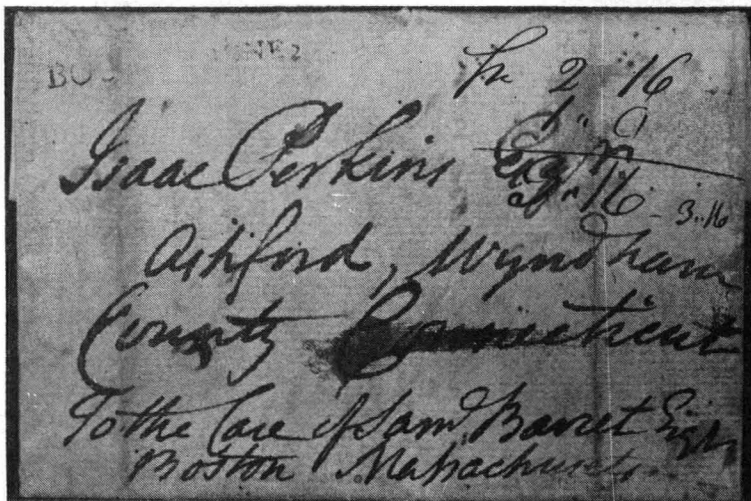 BOS
2 16
Isaac Perkins Esqr
3.. 16 3.. 16
Ashford, Wyndham
County Connecticut
To the Care of Saml. Barret Esqr
Boston Massachusets